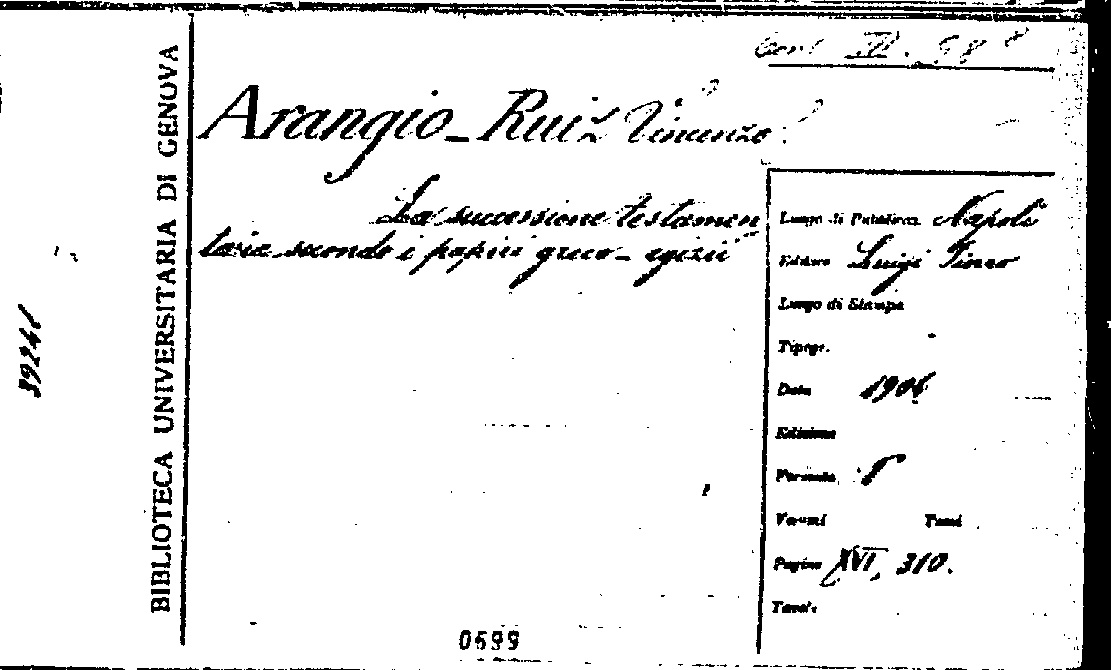 BIBLIOTECA UNIVERSITARIA DI GENOVA
39246
Arangio-Ruiz Vincenzo
La successione testamen
taria secondo i papiri greco-egizii
Luogo di Pubblicaz. Napoli
Editore Luigi Pierro
Luogo di Stampa
Tipogr.
Data 1906
Edizione
Formato 8°
Volumi Tomi
Pagine XVI, 310.
Tavole
0699